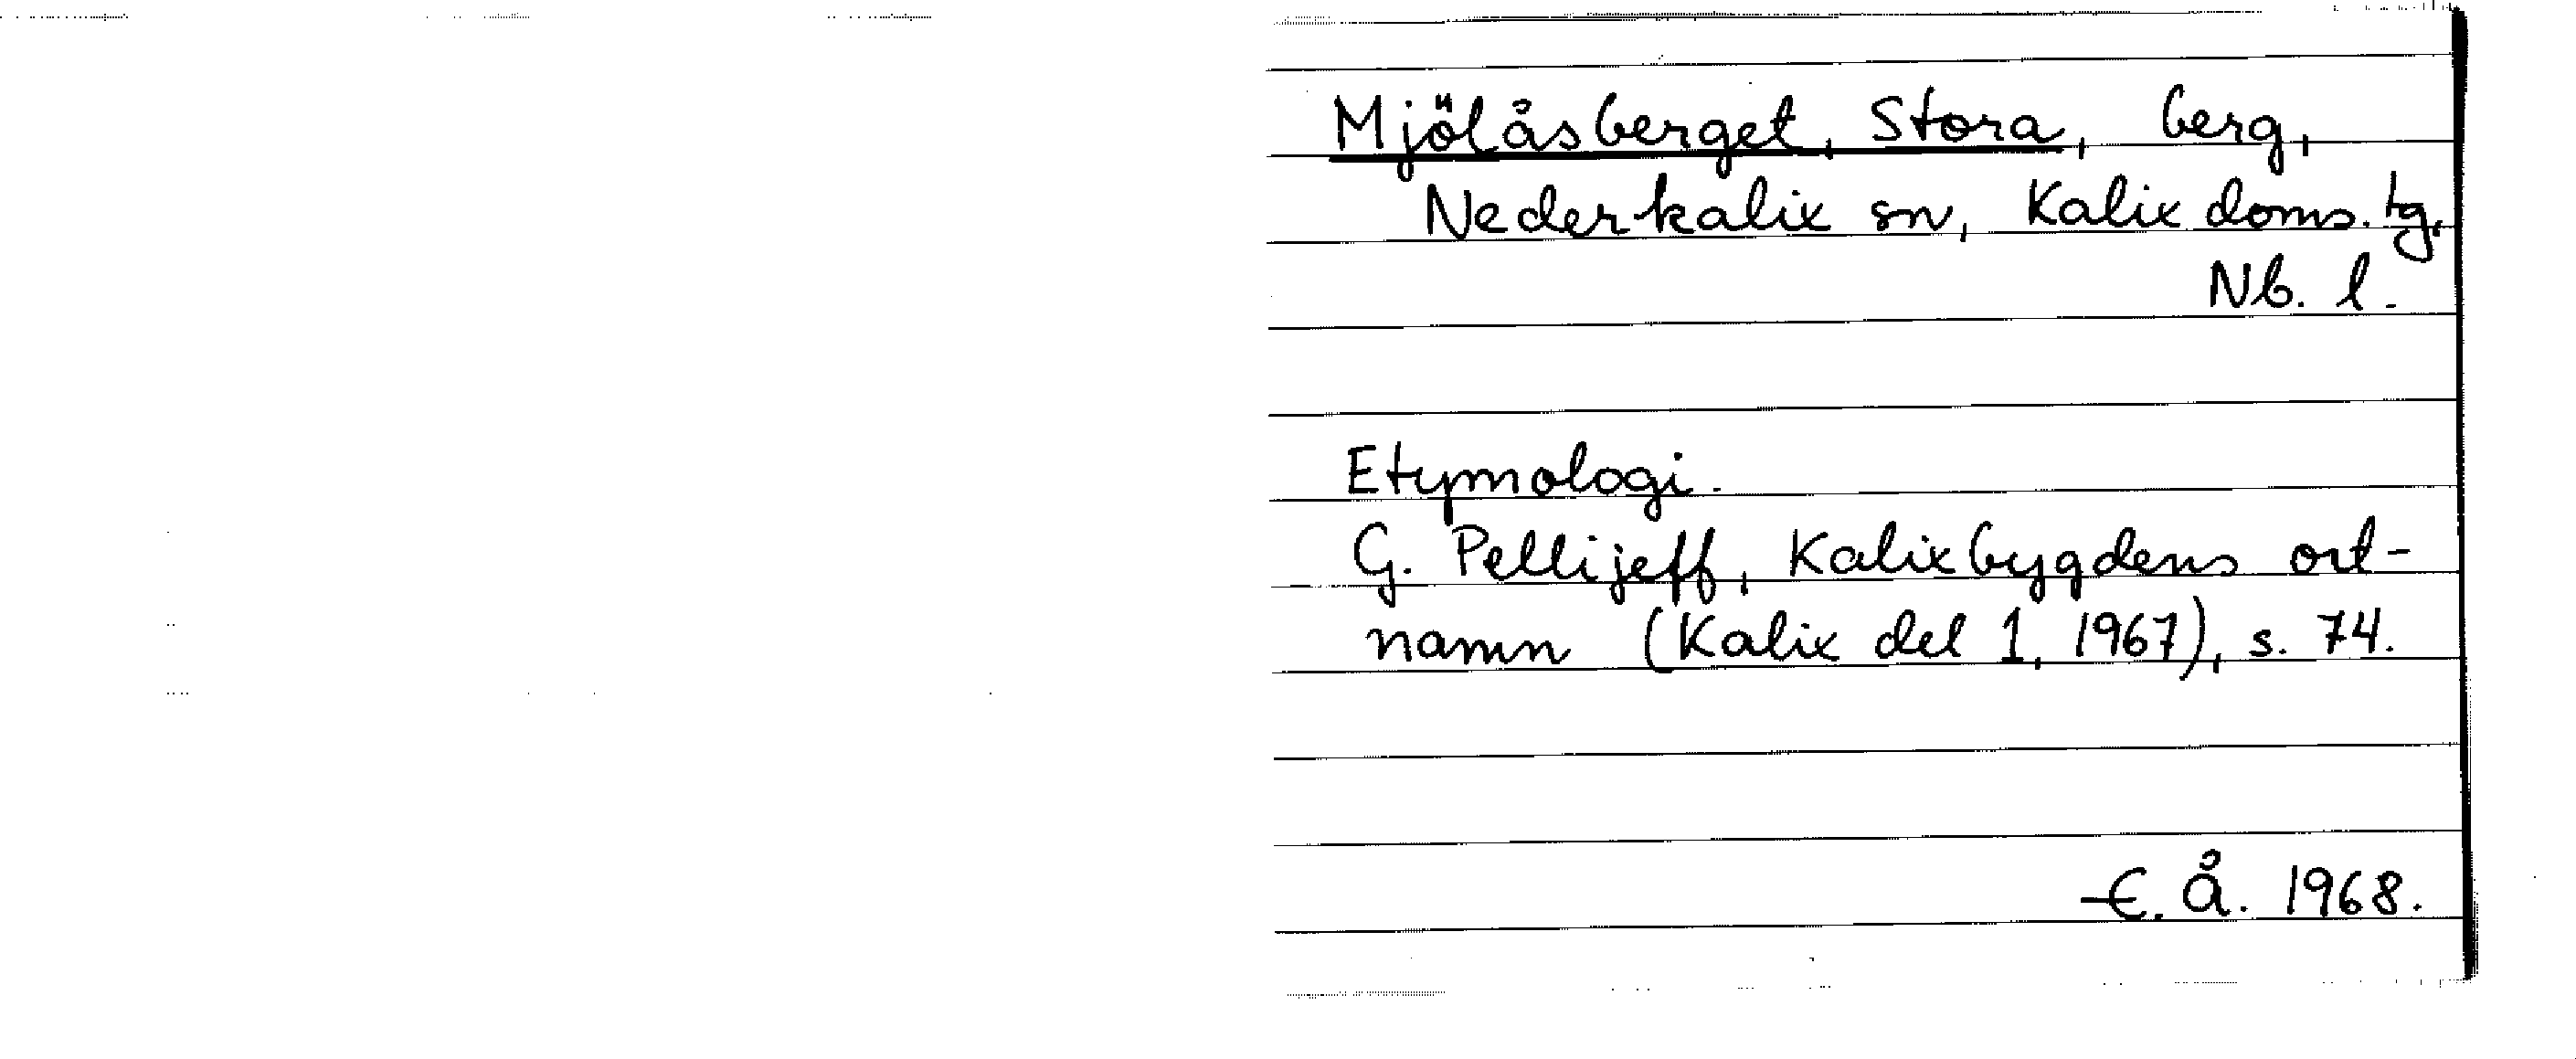 Mjölåsberget, Stora, berg,
Nederkalix sn, Kalix doms. tg,
Nb. l.
Etymologi.
G. Pellijeff, Kalixbygdens ort-
namn (Kalix del 1, 1967), s. 74.
E. Å. 1968.